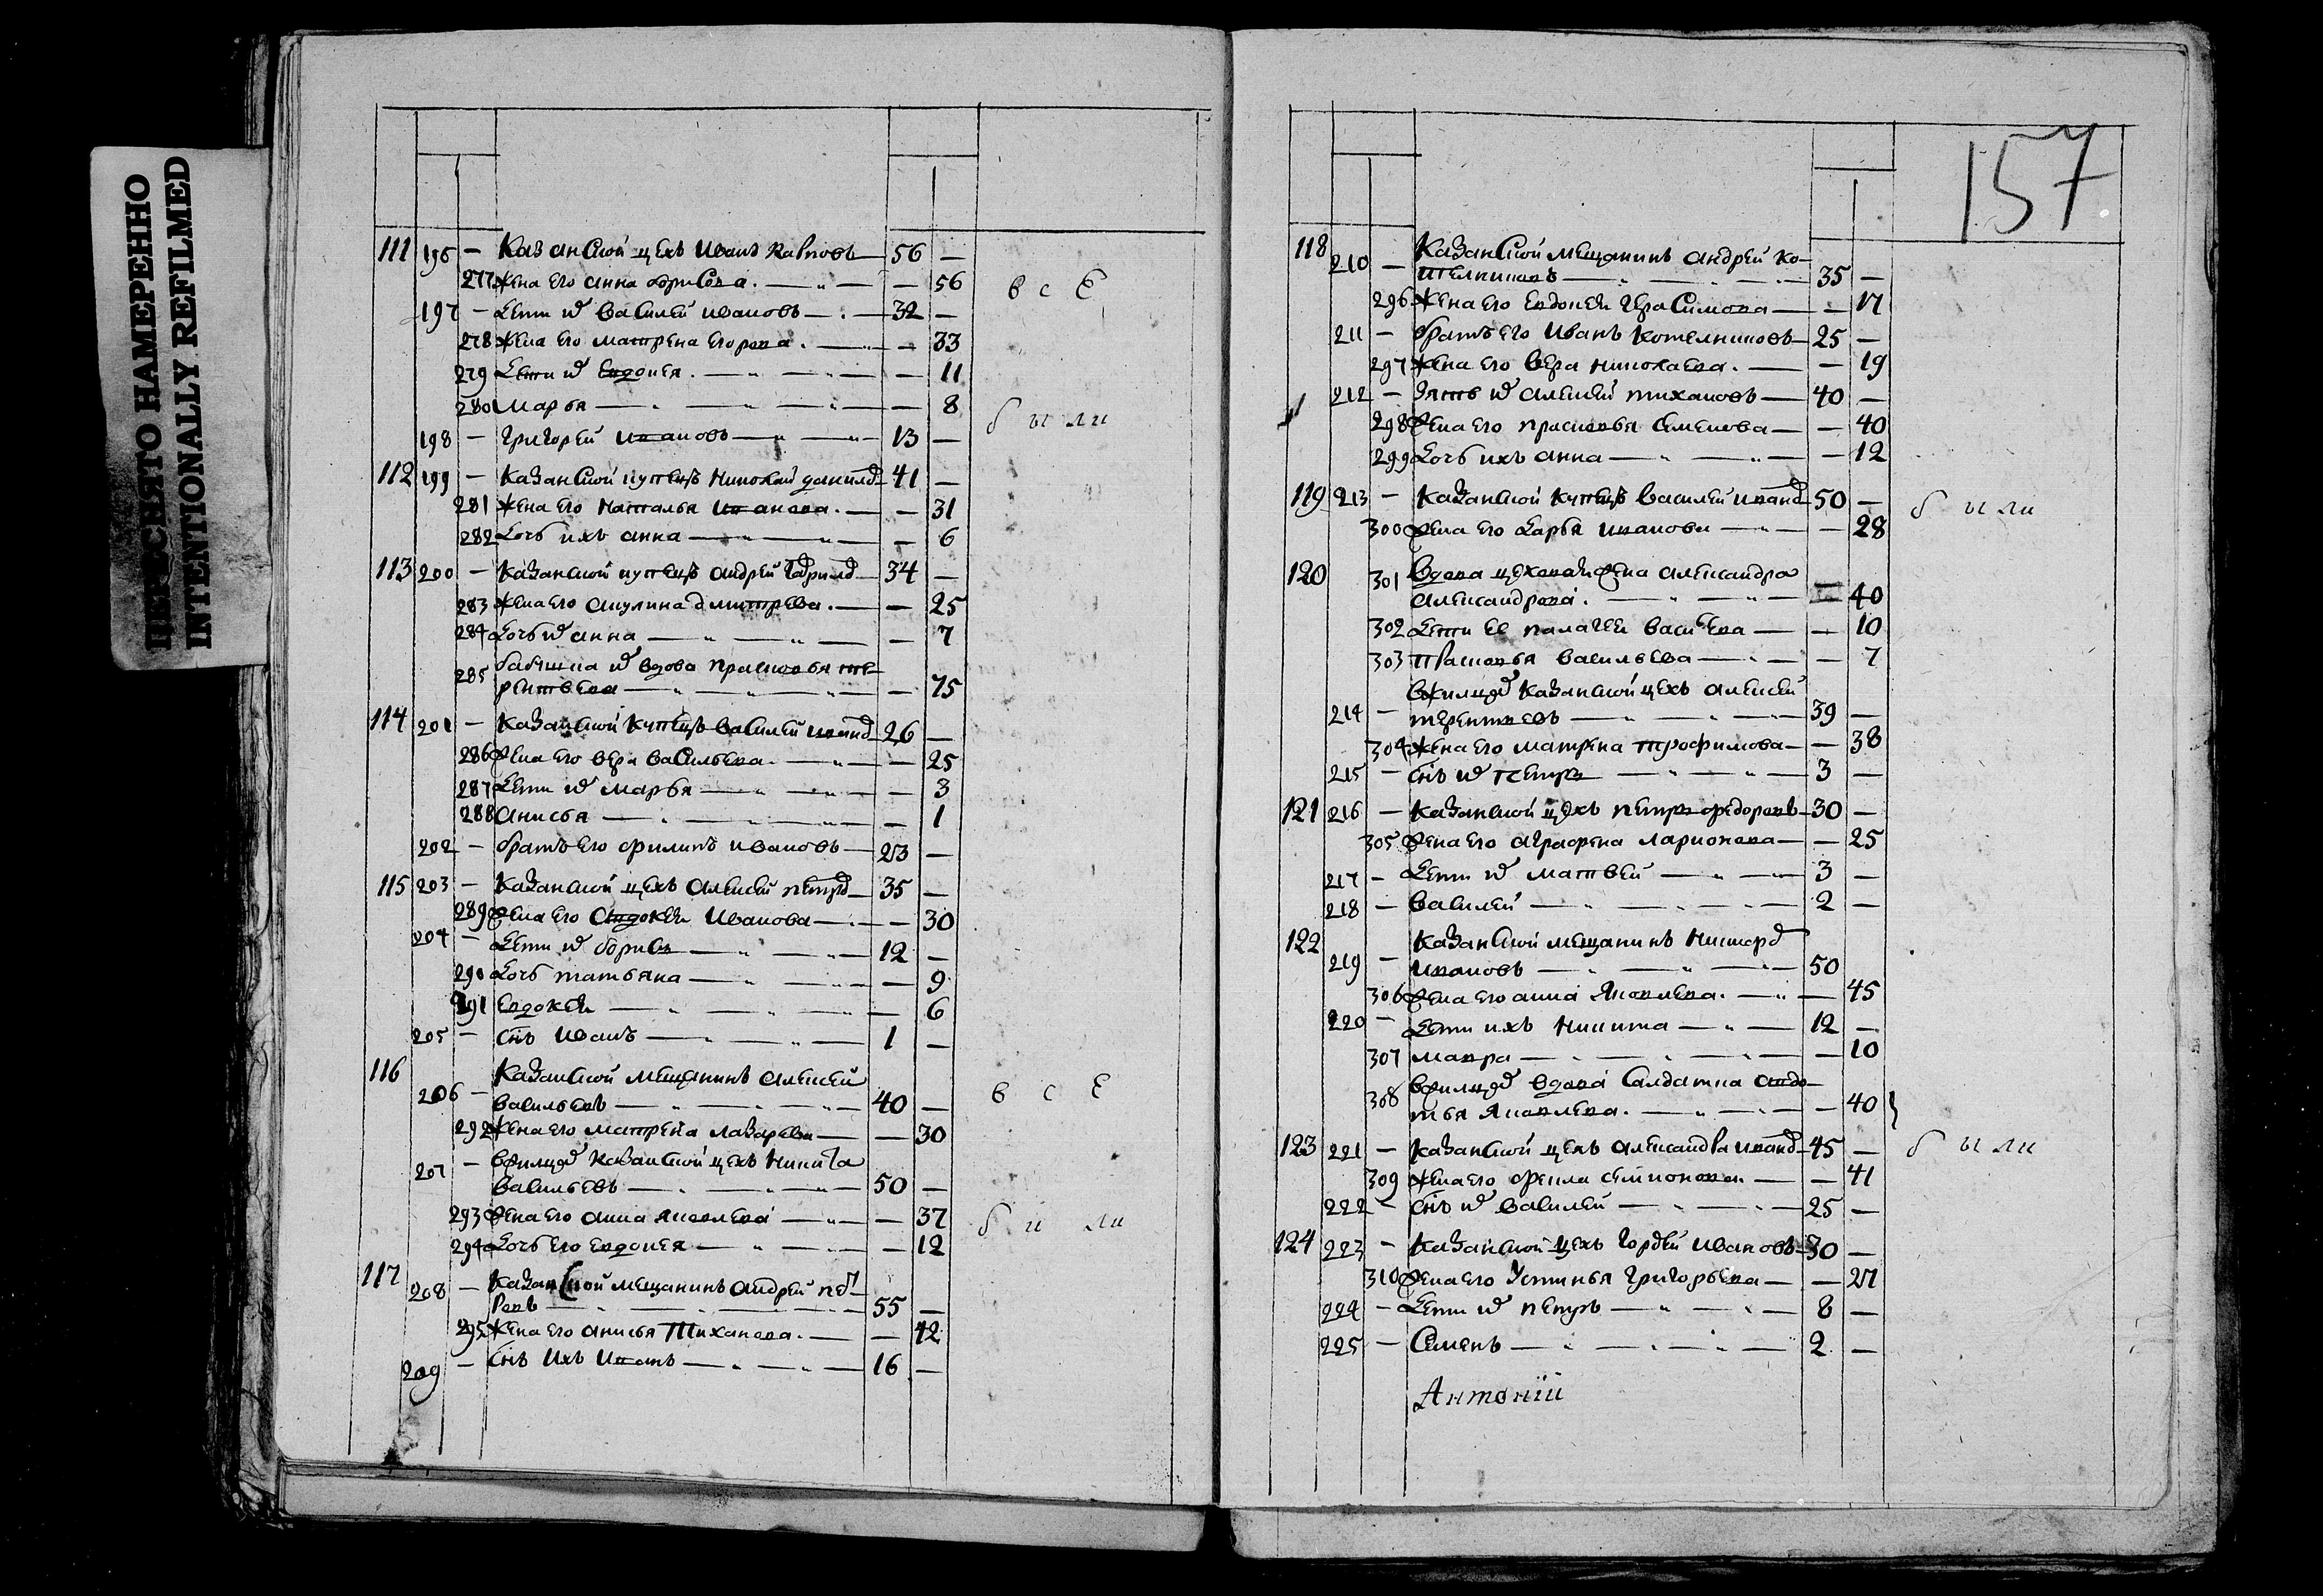 ПЕРЕСНЯТО НАМЕРЕННО
INTENTIONALLY REFILMED
157
111 196 — Казанской цехъ Иванъ — 56 —
277 жена его анна борисова — 56
все
197 — дети их василей ивановъ — 32 —
278 жена его матрена егорова — 33
279 дети их Евдокея — 11
280 Марья — 8
были
198 — григорей ивановъ — 13 —
112 199 — казанской купецъ николай данилов — 41 —
281 жена его наталья ивановa — 31
282 дочь ихъ анна — 6
113 200 — казанской купецъ андрей гаврилов — 34 —
283 жена его акулина дмитрева — 25
284 дочь их анна — 7
285 бабушка их вдова прасковья те-
рентьева — 75
114 201 — казанской купецъ василей иванов — 26 —
286 жена его вера васильева — 25
287 дети их марья — 3
288 анисья — 1
202 — братъ его филипъ ивановъ — 23 —
115 203 — казанской цехъ алексей петров — 35 —
289 жена его Иванова — 30
204 — дети их борисъ — 12 —
290 дочь татьяна — 9
291 евдокея — 6
205 — снъ иванъ — 1 —
116 казанской мещанинъ алексей
206 — васильевъ — 40 —
все
292 жена его матрена лазарева — 30
207 — казанской цехъ никита
васильевъ — 50 —
293 жена его анна яковлева — 37
были
294 дочь его евдокея — 12
117 208 — казанской мещанинъ андрей пет
ровъ — 55 —
295 жена его анисья тиханова — 42
209 — снъ ихъ иванъ — 16 —
118 210 — казанской мещанинъ андрей ко-
телниковъ — 35 —
296 жена его евдокея герасимова — 17
211 — братъ его иванъ котелниковъ — 25 —
297 жена его вера николаева — 19
212 — зять их алексей тихановъ — 40 —
298 жена его прасковья семенова — 40
299 дочь ихъ анна — 12
119 213 — казанской купецъ василей иванов — 50 —
были
300 жена его дарья иванова — 28
120 301 вдова цеховая жена александра
александрова — 40
302 дети ее палагея васильева — 10
303 прасковья васильева — 7
казанской цехъ алексей
214 — терентьевъ — 39 —
304 жена его матрена трофимова — 38
215 — снъ их петръ — 3 —
121 216 — казанской цехъ петръ федоровъ — 30 —
305 жена его аграфена ларионова — 25
217 — дети их матвей — 3 —
218 — василей — 2 —
122 казанской мещанинъ
219 — ивановъ — 50
306 жена его анна яковлева — 45
220 — дети ихъ никита — 12 —
307 мавра — 10
308 вдова салдатка авдо-
тья яковлева — 40
123 221 — казанской цехъ александра иванов — 45 —
были
309 жена его фекла семионова — 41
222 — снъ их василей — 25 —
124 223 — казанской цехъ гордей ивановъ — 30 —
310 жена его устинья григорьева — 27
224 — дети их петръ — 8 —
225 — семенъ — 2 —
Антоній